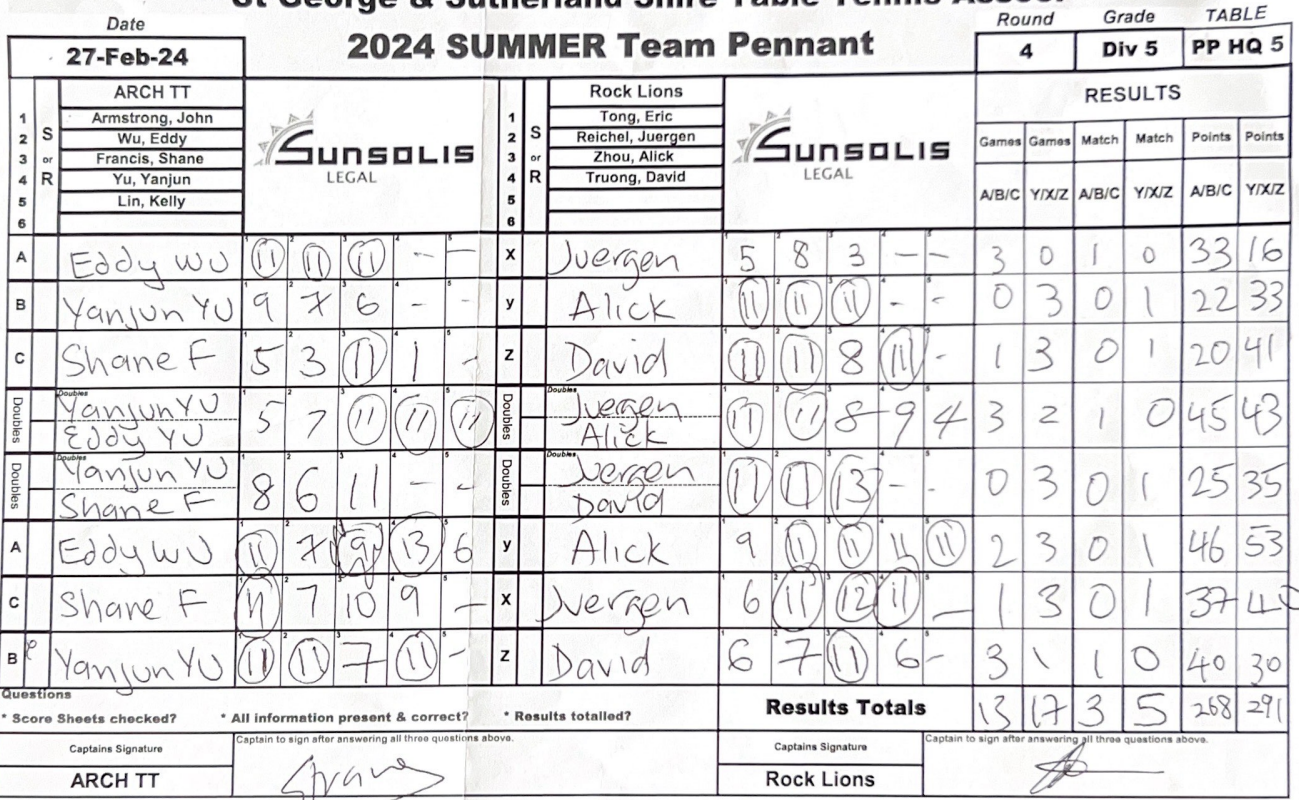 St George & Sutherland Shire Table Tennis Assoc.
Date
27-Feb-24
2024 SUMMER Team Pennant
Round Grade TABLE
4 Div 5 PP HQ 5
ARCH TT
1 Armstrong, John
2 S Wu, Eddy
3 or Francis, Shane
4 R Yu, Yanjun
5 Lin, Kelly
6
SUNSOLIS
LEGAL
Rock Lions
1 Tong, Eric
2 S Reichel, Juergen
3 or Zhou, Alick
4 R Truong, David
5
6
SUNSOLIS
LEGAL
RESULTS
Games Games Match Match Points Points
A/B/C Y/X/Z A/B/C Y/X/Z A/B/C Y/X/Z
A Eddy WU 11 11 11 - - X Juergen 5 8 3 - - 3 0 1 0 33 16
B Yanjun YU 9 7 6 - - y Alick 11 11 11 - - 0 3 0 1 22 33
C Shane F 5 3 11 1 - Z David 11 11 8 11 - 1 3 0 1 20 41
Doubles Yanjun YU 5 7 11 11 11 Doubles Juergen 11 11 8 9 4 3 2 1 0 45 43
Eddy YU Alick
Doubles Yanjun YU 8 6 11 - - Doubles Juergen 11 11 13 - - 0 3 0 1 25 35
Shane F David
A Eddy WU 11 7 9 13 6 y Alick 9 11 11 11 11 2 3 0 1 46 53
C Shane F 11 7 10 9 - X Juergen 6 11 12 11 - 1 3 0 1 37 40
B Yanjun YU 11 11 7 11 - Z David 6 7 11 6 - 3 1 1 0 40 30
Questions
* Score Sheets checked? * All information present & correct? * Results totalled?
Results Totals 13 17 3 5 268 291
Captains Signature
Captain to sign after answering all three questions above.
ARCH TT
Captains Signature
Captain to sign after answering all three questions above.
Rock Lions